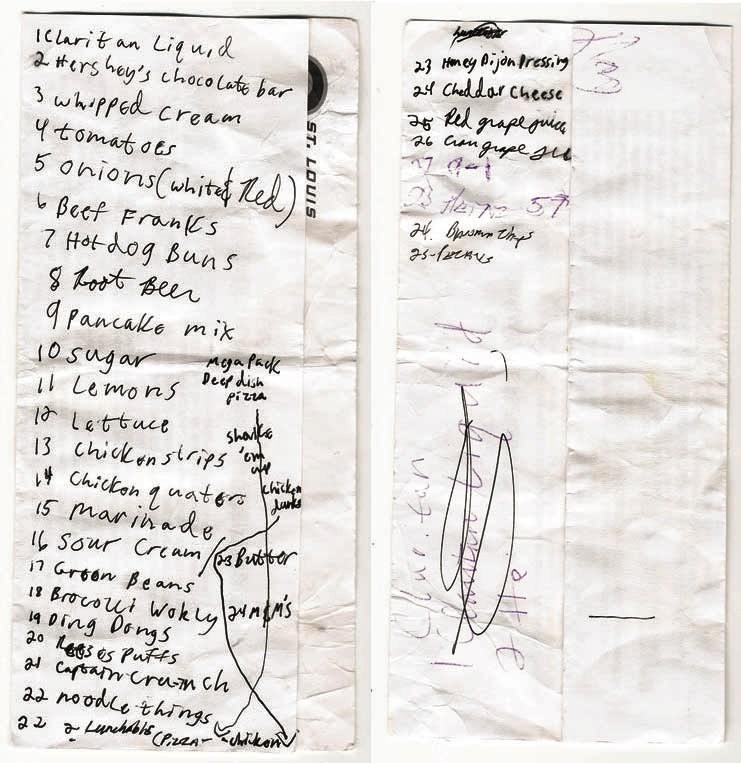 1 Claritan Liquid
2 Hershey's chocolate bar
3 whipped cream
4 tomatoes
5 onions (white & Red)
6 Beef Franks
7 Hotdog Buns
8 Root Beer
9 pancake mix
10 sugar
11 Lemons
12 lettuce
13 chicken strips
14 Chicken quaters
15 marinade
16 sour cream
17 Green Beans
18 Brocolli Wokly
19 Ding Dongs
20 Reeses Puffs
21 Captain Crunch
22 noodle things
22 2 Lunchables (Pizza - chicken
Mega Pack
Deep dish
pizza
shake
'em
up
chicken
23 Butter
24 M&M's
ST. LOUIS
23 Honey Dijon Dressing
24 Cheddar Cheese
25 Red grape juice
26 Cran grape
27 A-1
28 Heinz 57
24.
25-
1 Claritan liquid
2 He